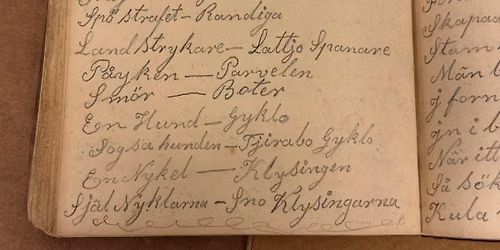 Spö strafet - Randiga
Landstrykare - Lattjo Spanare
Påyken — Parvelen
Smör — Boter
En Hund - Gyklo
Sogsa hunden - Tjirabo Gyklo
En Nykel — Klysingen
Själ Nyklarna - Sno Klysingarna
Skapa
Stam
Män
j forn
gn i
När itt
Så sök
Kula